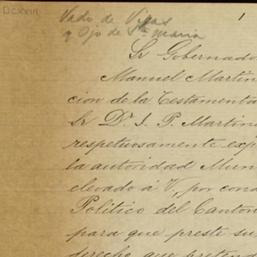 DCXXIII
Vado de Vigas
y Ojo de Sta Maria
1
Sr Gobernado
Manuel Martin
cion de la Testamenta
Sr Dn. J. P. Martin
respetuosamente exp
la autoridad Mun
elevado á V, por cond
Politico del Canton
para que preste su
derecho que pretend